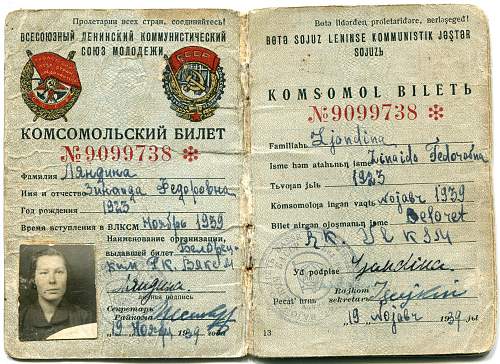 Пролетарии всех стран, соединяйтесь!
ВСЕСОЮЗНЫЙ ЛЕНИНСКИЙ КОММУНИСТИЧЕСКИЙ
СОЮЗ МОЛОДЕЖИ
КОМСОМОЛЬСКИЙ БИЛЕТ
№ 9099738 *
Фамилия Ляндина
Имя и отчество Зинаида Федоровна
Год рождения 1923
Время вступления в ВЛКСМ Ноябрь 1939
Наименование организации,
выдавшей билет Белорец-
ким РК. ВЛКСМ
Ляндина
личная подпись
Секретарь
Райкома
19 Ноября 1939 года
Bətə ildarđen proletaridare, berləşeged!
BƏTƏ SOJUZ LENINSE KOMMUNISTIK JƏŞTƏR
SOJUZЬ
KOMSOMOL BILETЬ
№ 9099738 *
Familiahь Ljandina
Isme həm atahьnьꞑ isme Zinaida Fedorovna
Tьvƣan jьlь 1923
Komsomolƣa ingən vaqtь Nojabr 1939
Bilet birgən ojoşmanьꞑ isme Beloret
RK. VLKSM
Yđ podpise Ljandina
Rajkom
Pecat' urnь sekretare
"19" Nojabr 1939 jьl
13